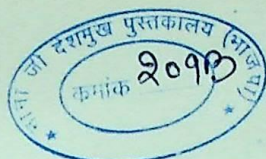 नाना जी देशमुख पुस्तकालय (भाजपा)
क्रमांक २०१३